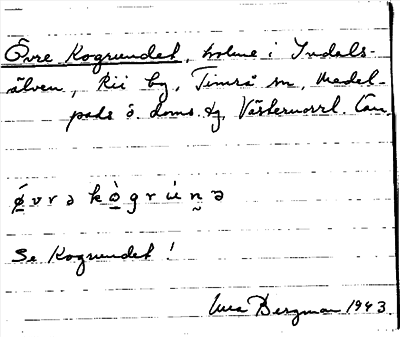 Övre Kogrundet, holme i Indals-
älven, Rii by, Timrå sn, Medel-
pads ö. doms. tg, Västernorrl. län.
ǿ v r ə k ò̱ g r ù n̰ ə
Se Kogrundet!
Bergman 1943.